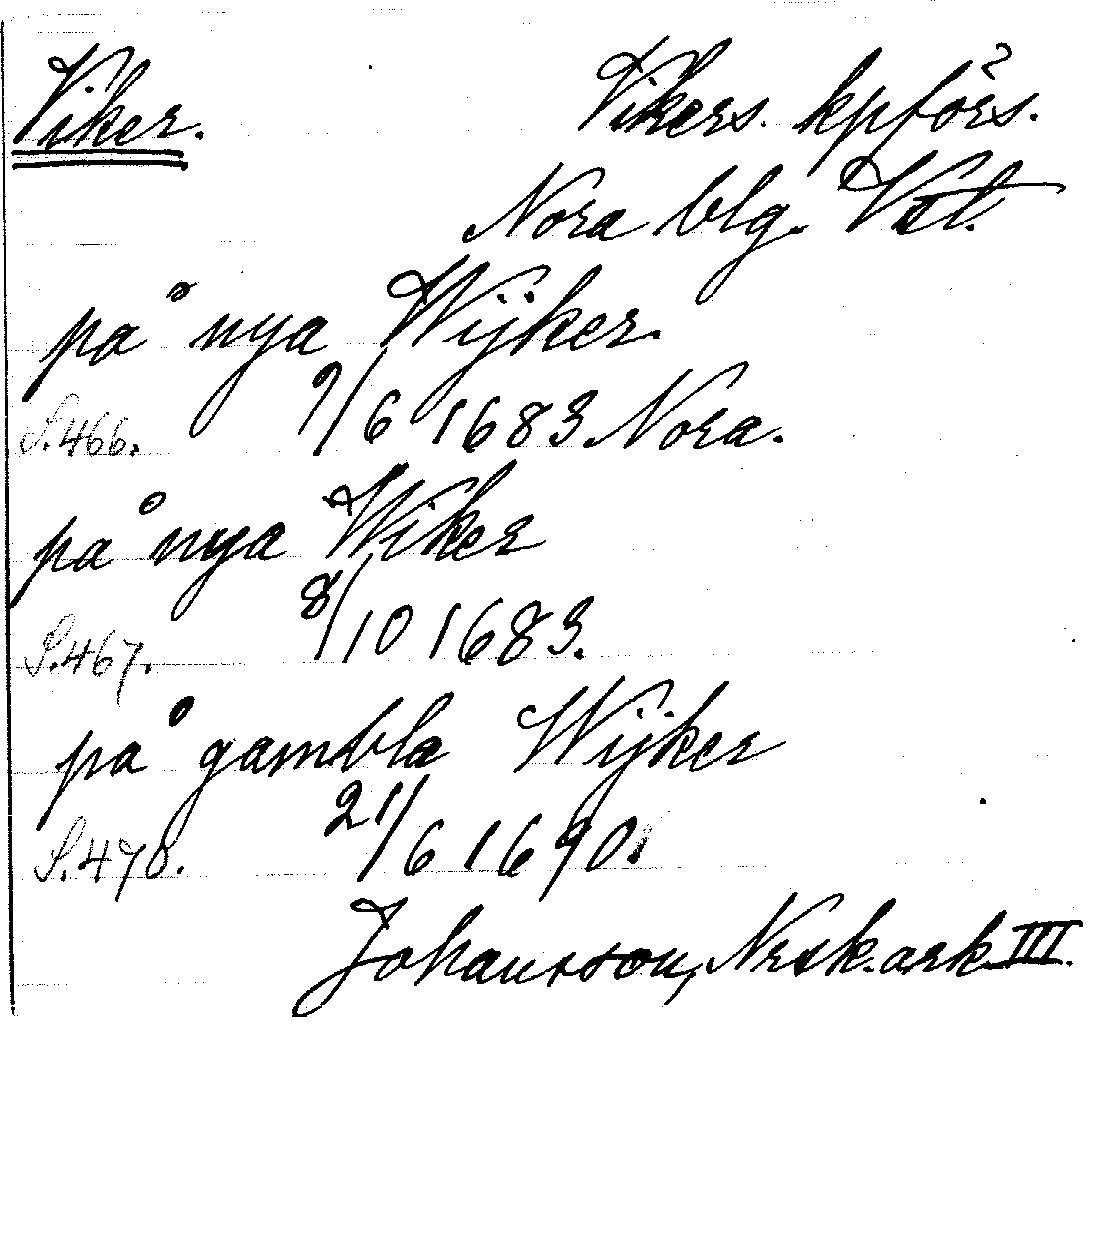 Viker. Vikers. kpförs.
Nora blg. Vstl.
på nya Wijker.
S. 466. 9/6 1683 Nora.
på nya Wiker
S. 467. 8/10 1683.
på gambla Wijker
S. 470. 21/6 1690.
Johansson, Norask. ark. III.